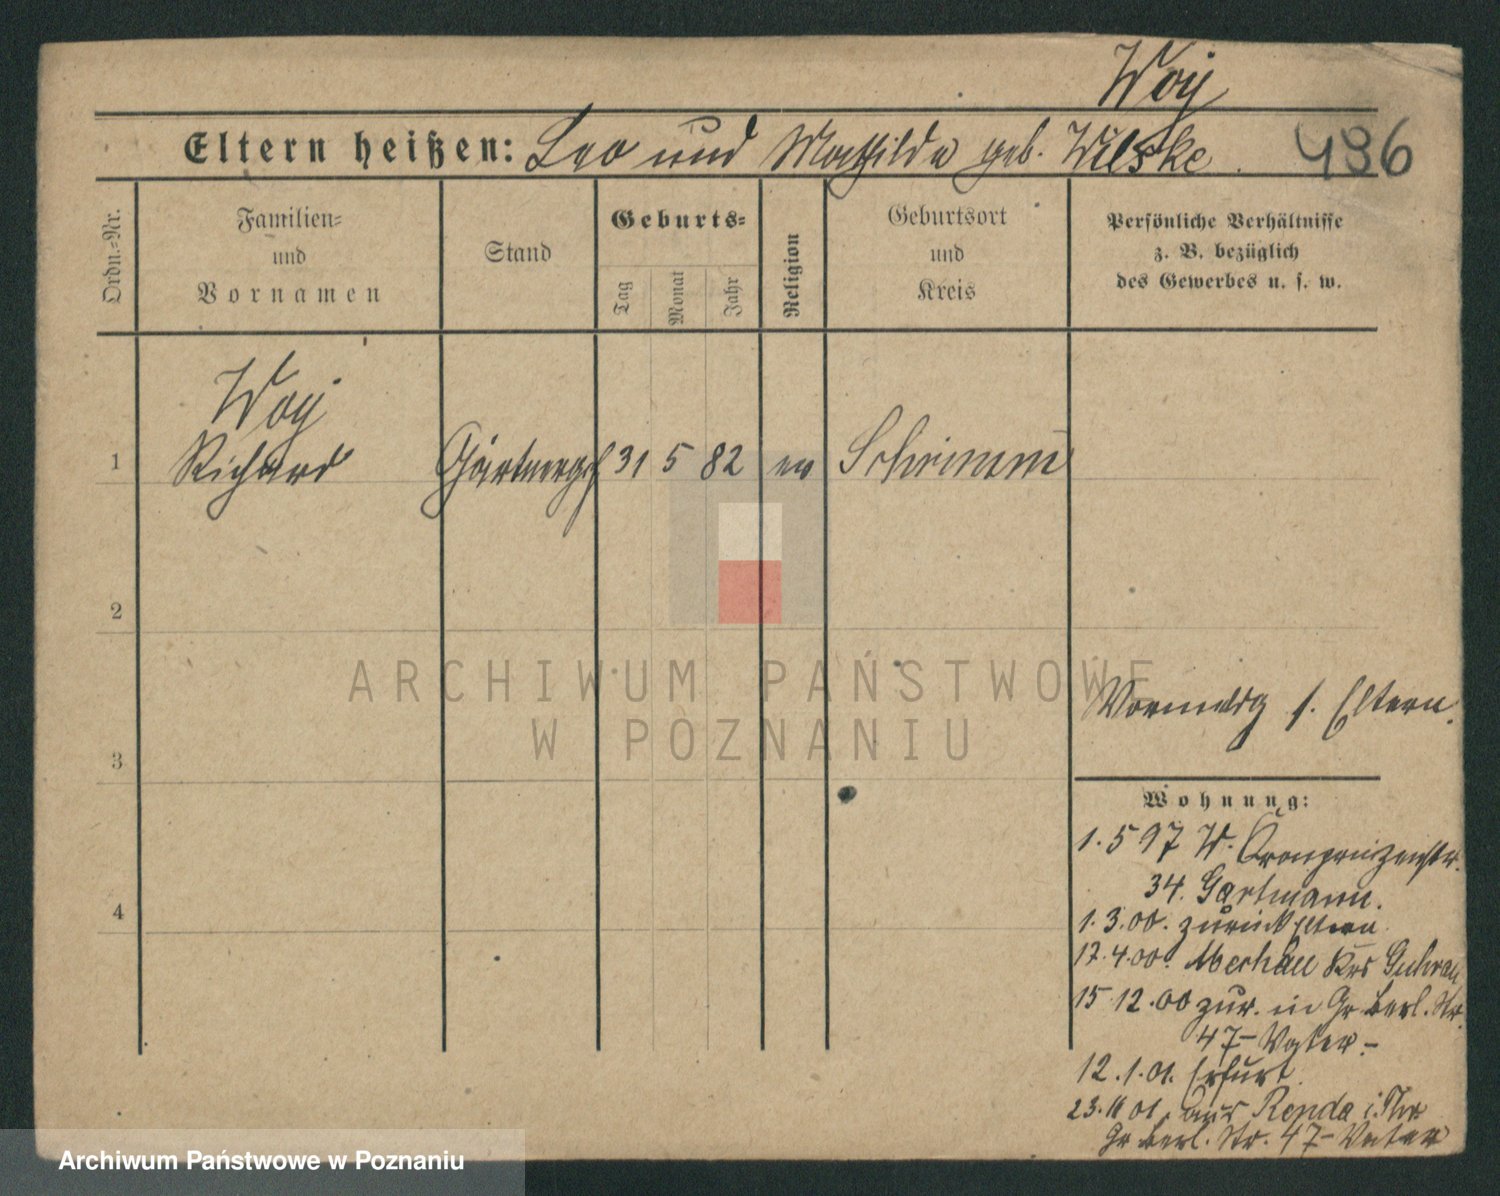 Woÿ
Eltern heißen: Leo und Mathilde geb. Wilske.
436
Ordn.-Nr.
Familien-
und
Vornamen
Stand
Geburts-
Tag
Monat
Jahr
Religion
Geburtsort
und
Kreis
Persönliche Verhältnisse
z. B. bezüglich
des Gewerbes u. s. w.
Woÿ
1 Richard Gärtnergeh 31 5 82 ev Schrimm
2
3
4
Vormldg s. Eltern.
Wohnung:
1. 5 97 W. Kronprinzenstr.
34. Gartmann.
1. 3. 00. zurück Eltern
17. 4. 00. Krs Guhrau
15 12. 00 zur. in Gr Berl. Str.
47- Vater.-
12. 1. 01. Erfurt
23. 11 01. aus Renda i. Thr.
Gr Berl. Str. 47- Vater
ARCHIWUM PAŃSTWOWE
W POZNANIU
Archiwum Państwowe w Poznaniu